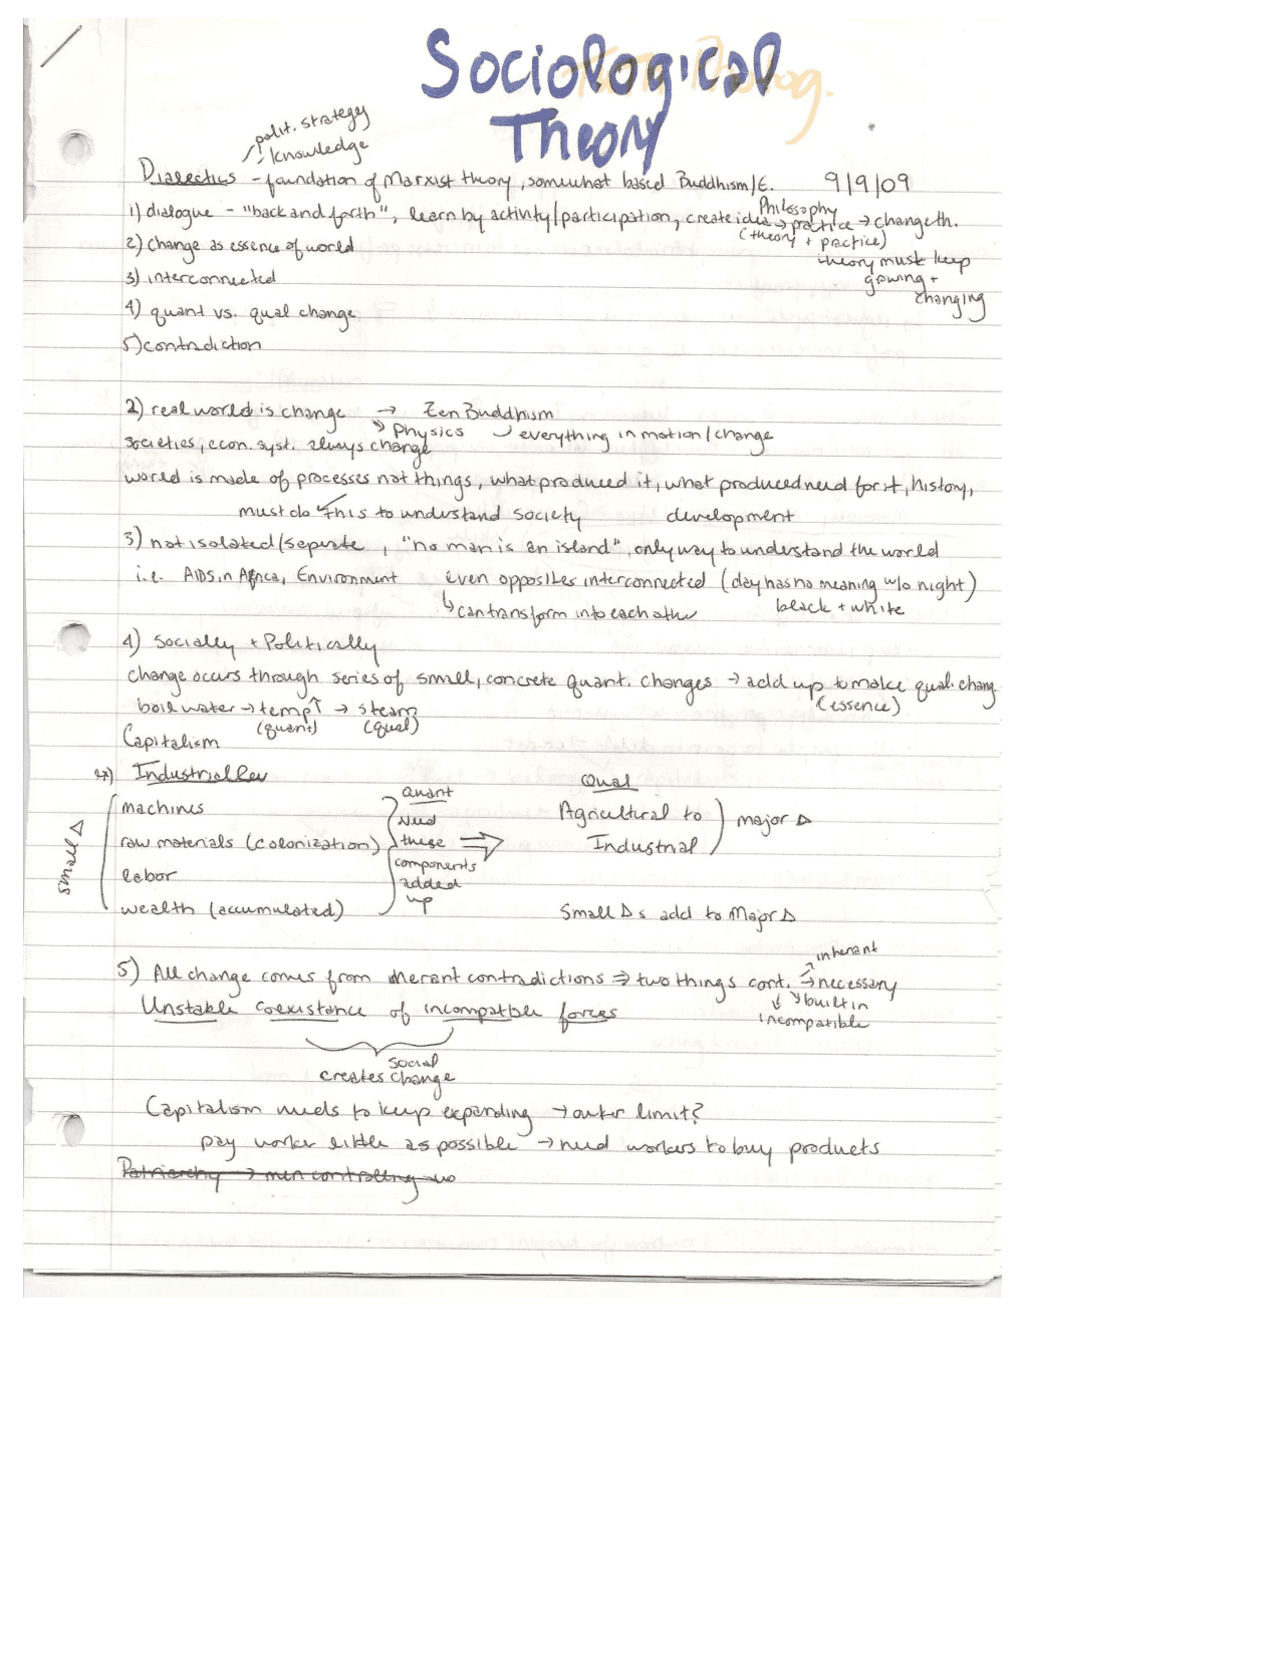 Sociological
Theory
polit. strategy
knowledge
Dialectics - foundation of Marxist theory, somewhat based Buddhism/E. 9/9/09
Philosophy
1) dialogue - "back and forth", learn by activity/participation, create idea → practice → change th.
(theory + practice)
2) change as essence of world
theory must keep
growing +
changing
3) interconnected
4) quant vs. qual change
5) contradiction
2) real world is change → Zen Buddhism
→ Physics everything in motion/change
societies, econ. syst. always change
world is made of processes not things, what produced it, what produced need for it, history,
must do this to understand society development
3) not isolated/seperate, "no man is an island", only way to understand the world
i.e. AIDS in Africa, Environment Even opposites interconnected (day has no meaning w/o night)
↳ can transform into each other black + white
4) Socially + Politically
change occurs through series of small, concrete quant. changes → add up to make qual. chang
(essence)
boil water → temp↑ → steam
(quant) (qual)
Capitalism
Industrial Rev
Quant
Qual
machines
raw materials (colonization)
labor
wealth (accumulated)
small Δ
Need
these ⇒
components
added
up
Agricultural to
Industrial
major Δ
Small Δs add to Major Δ
inherant
5) All change comes from inerant contradictions ⇒ two things cont. → necessary
built in
incompatible
Unstable coexistance of incompatible forces
social
creates change
Capitalism needs to keep expanding → outer limit?
pay worker little as possible → need workers to buy products
Patriarchy → men controlling wo